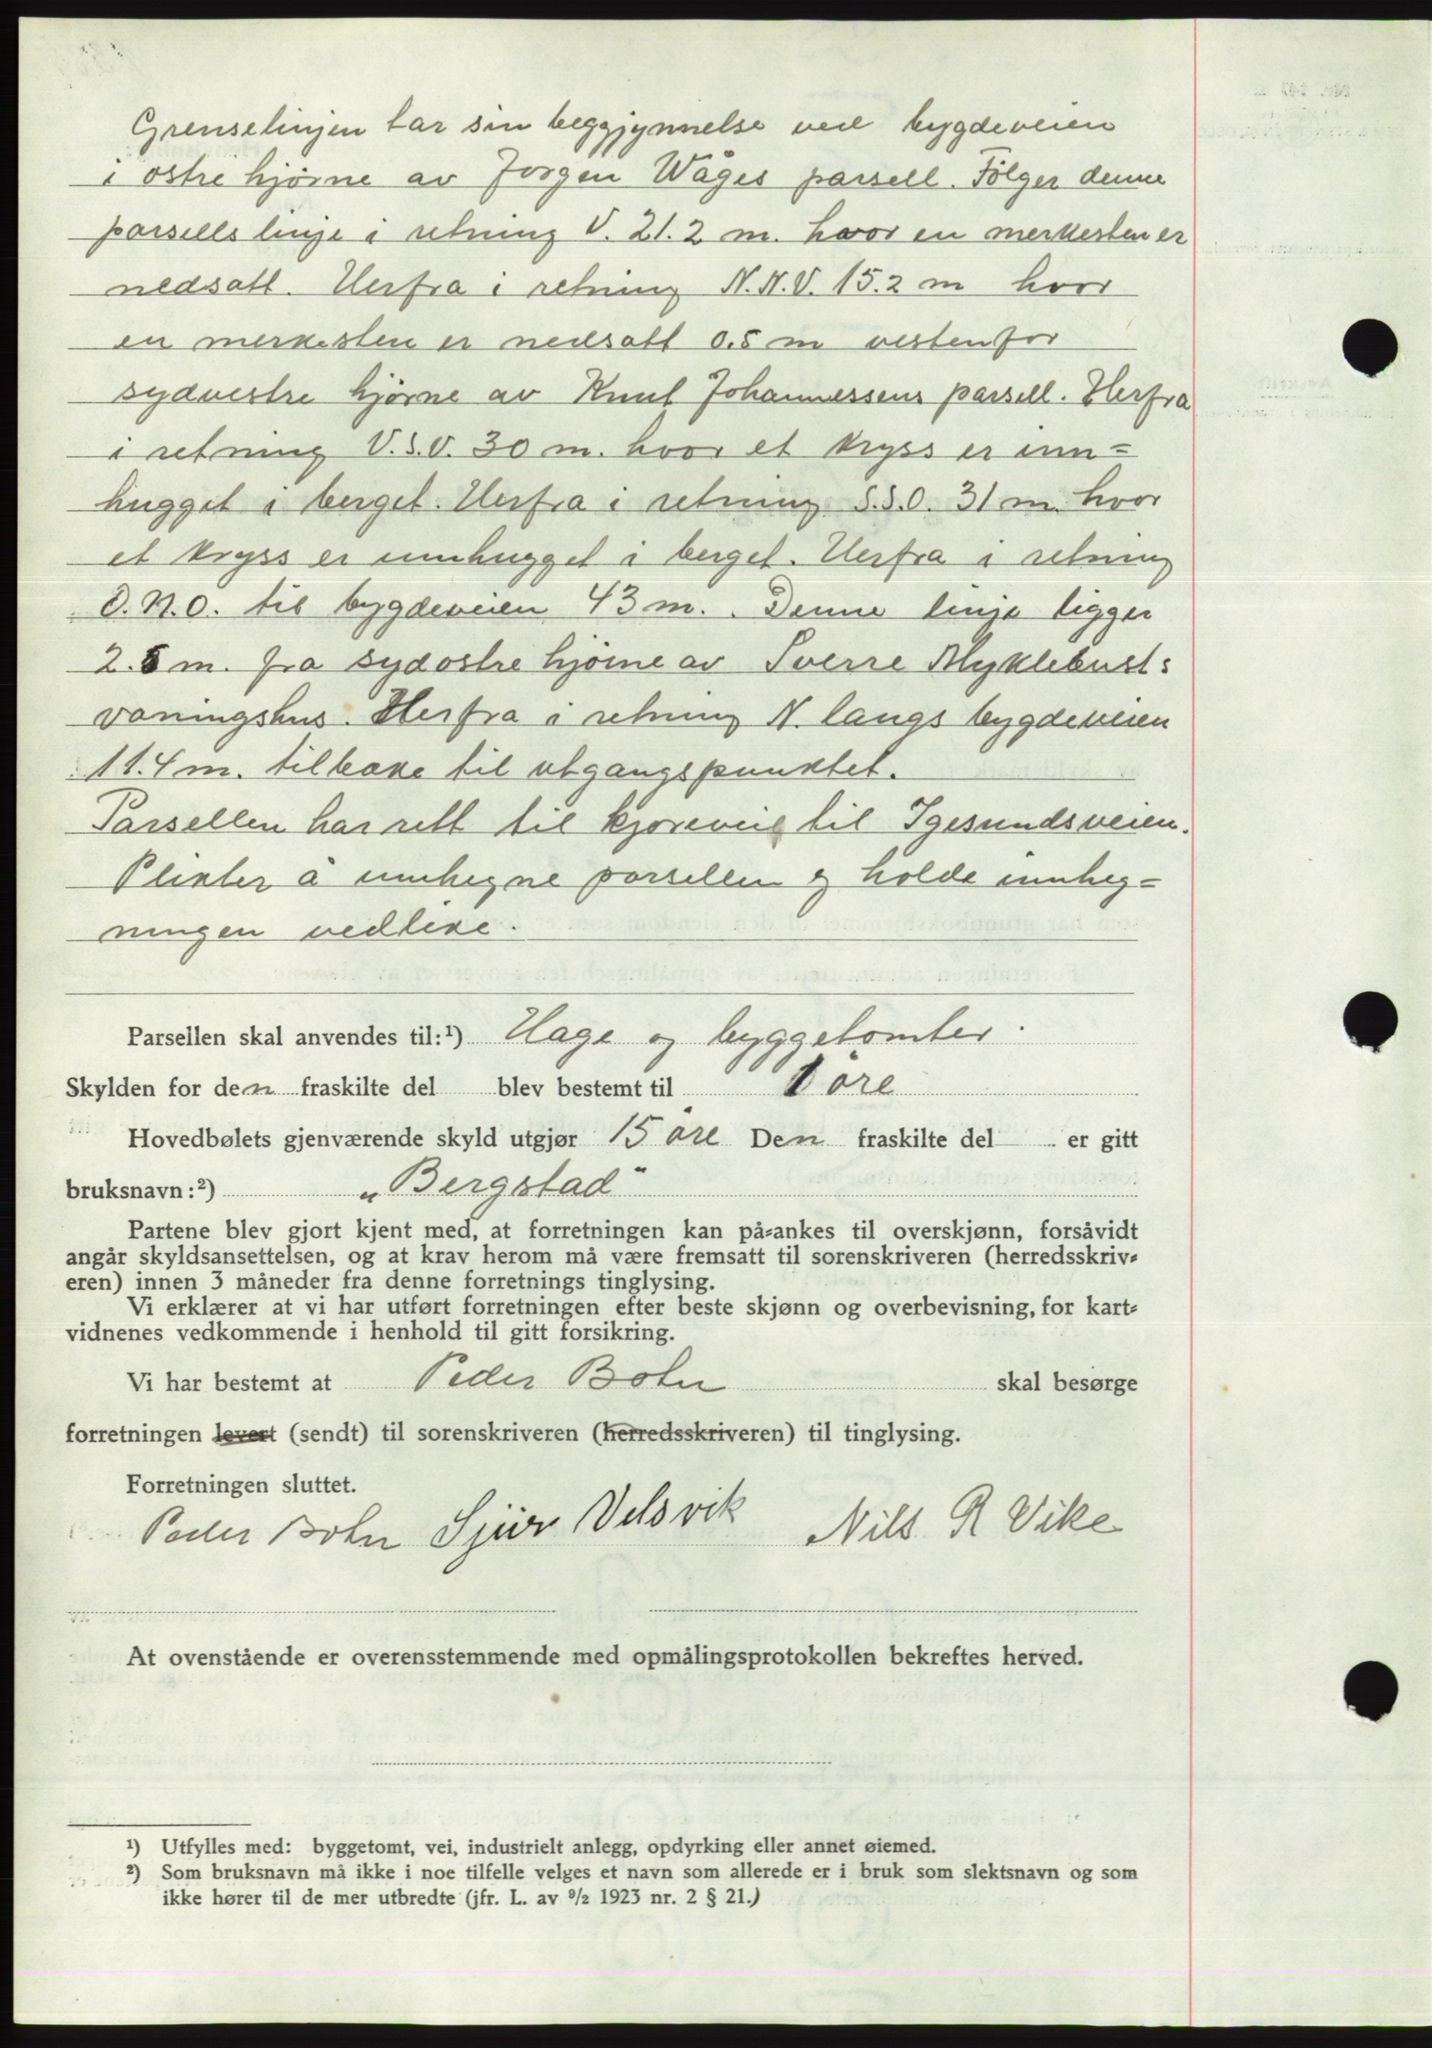 Grenselinjen tar sin beggjynnelse ved bygdeveien
i ostre hjørne av Jorgen Wåges parsell. Følger denne
parsells linje i retning V. 21.2 m. hvor en merkesten er
nedsatt. Herfra i retning N.N.V. 15.2 m hvor
en merkesten er nedsatt 0.5 m vestenfor
sydvestre hjørne av Knut Johannessens parsell. Herfra
i retning V.S.V. 30 m. hvor et kryss er inn=
hugget i berget. Herfra i retning S.S.O. 31 m. hvor
et kryss er innhugget i berget. Herfra i retning
O.N.O. til bygdeveien 43 m. Denne linje ligger
2.5 m. fra sydostre hjørne av Sverre Myklebusts
våningshus. Herfra i retning N. langs bygdeveien
11.4 m. tilbake til utgangspunktet.
Parsellen har rett til kjoreveie til Igesundsveien.
Plikter å innhegne parsellen og holde innheg=
ningen vedlike.
Parsellen skal anvendes til:¹) Hage og byggetomter.
Skylden for den fraskilte del blev bestemt til 1 øre
Hovedbølets gjenværende skyld utgjør 15 øre Den fraskilte del er gitt
bruksnavn:²) „Bergstad"
Partene blev gjort kjent med, at forretningen kan på=ankes til overskjønn, forsåvidt
angår skyldsansettelsen, og at krav herom må være fremsatt til sorenskriveren (herredsskriv=
eren) innen 3 måneder fra denne forretnings tinglysing.
Vi erklærer at vi har utført forretningen efter beste skjønn og overbevisning, for kart=
vidnenes vedkommende i henhold til gitt forsikring.
Vi har bestemt at Peder Bohn skal besørge
forretningen levert (sendt) til sorenskriveren (herredsskriveren) til tinglysing.
Forretningen sluttet.
Peder Bohn Sjur Velsvik Nils R Vike
At ovenstående er overensstemmende med opmålingsprotokollen bekreftes herved.
¹) Utfylles med: byggetomt, vei, industrielt anlegg, opdyrking eller annet øiemed.
²) Som bruksnavn må ikke i noe tilfelle velges et navn som allerede er i bruk som slektsnavn og som
ikke hører til de mer utbredte (jfr. L. av ⁹/₂ 1923 nr. 2 § 21.)